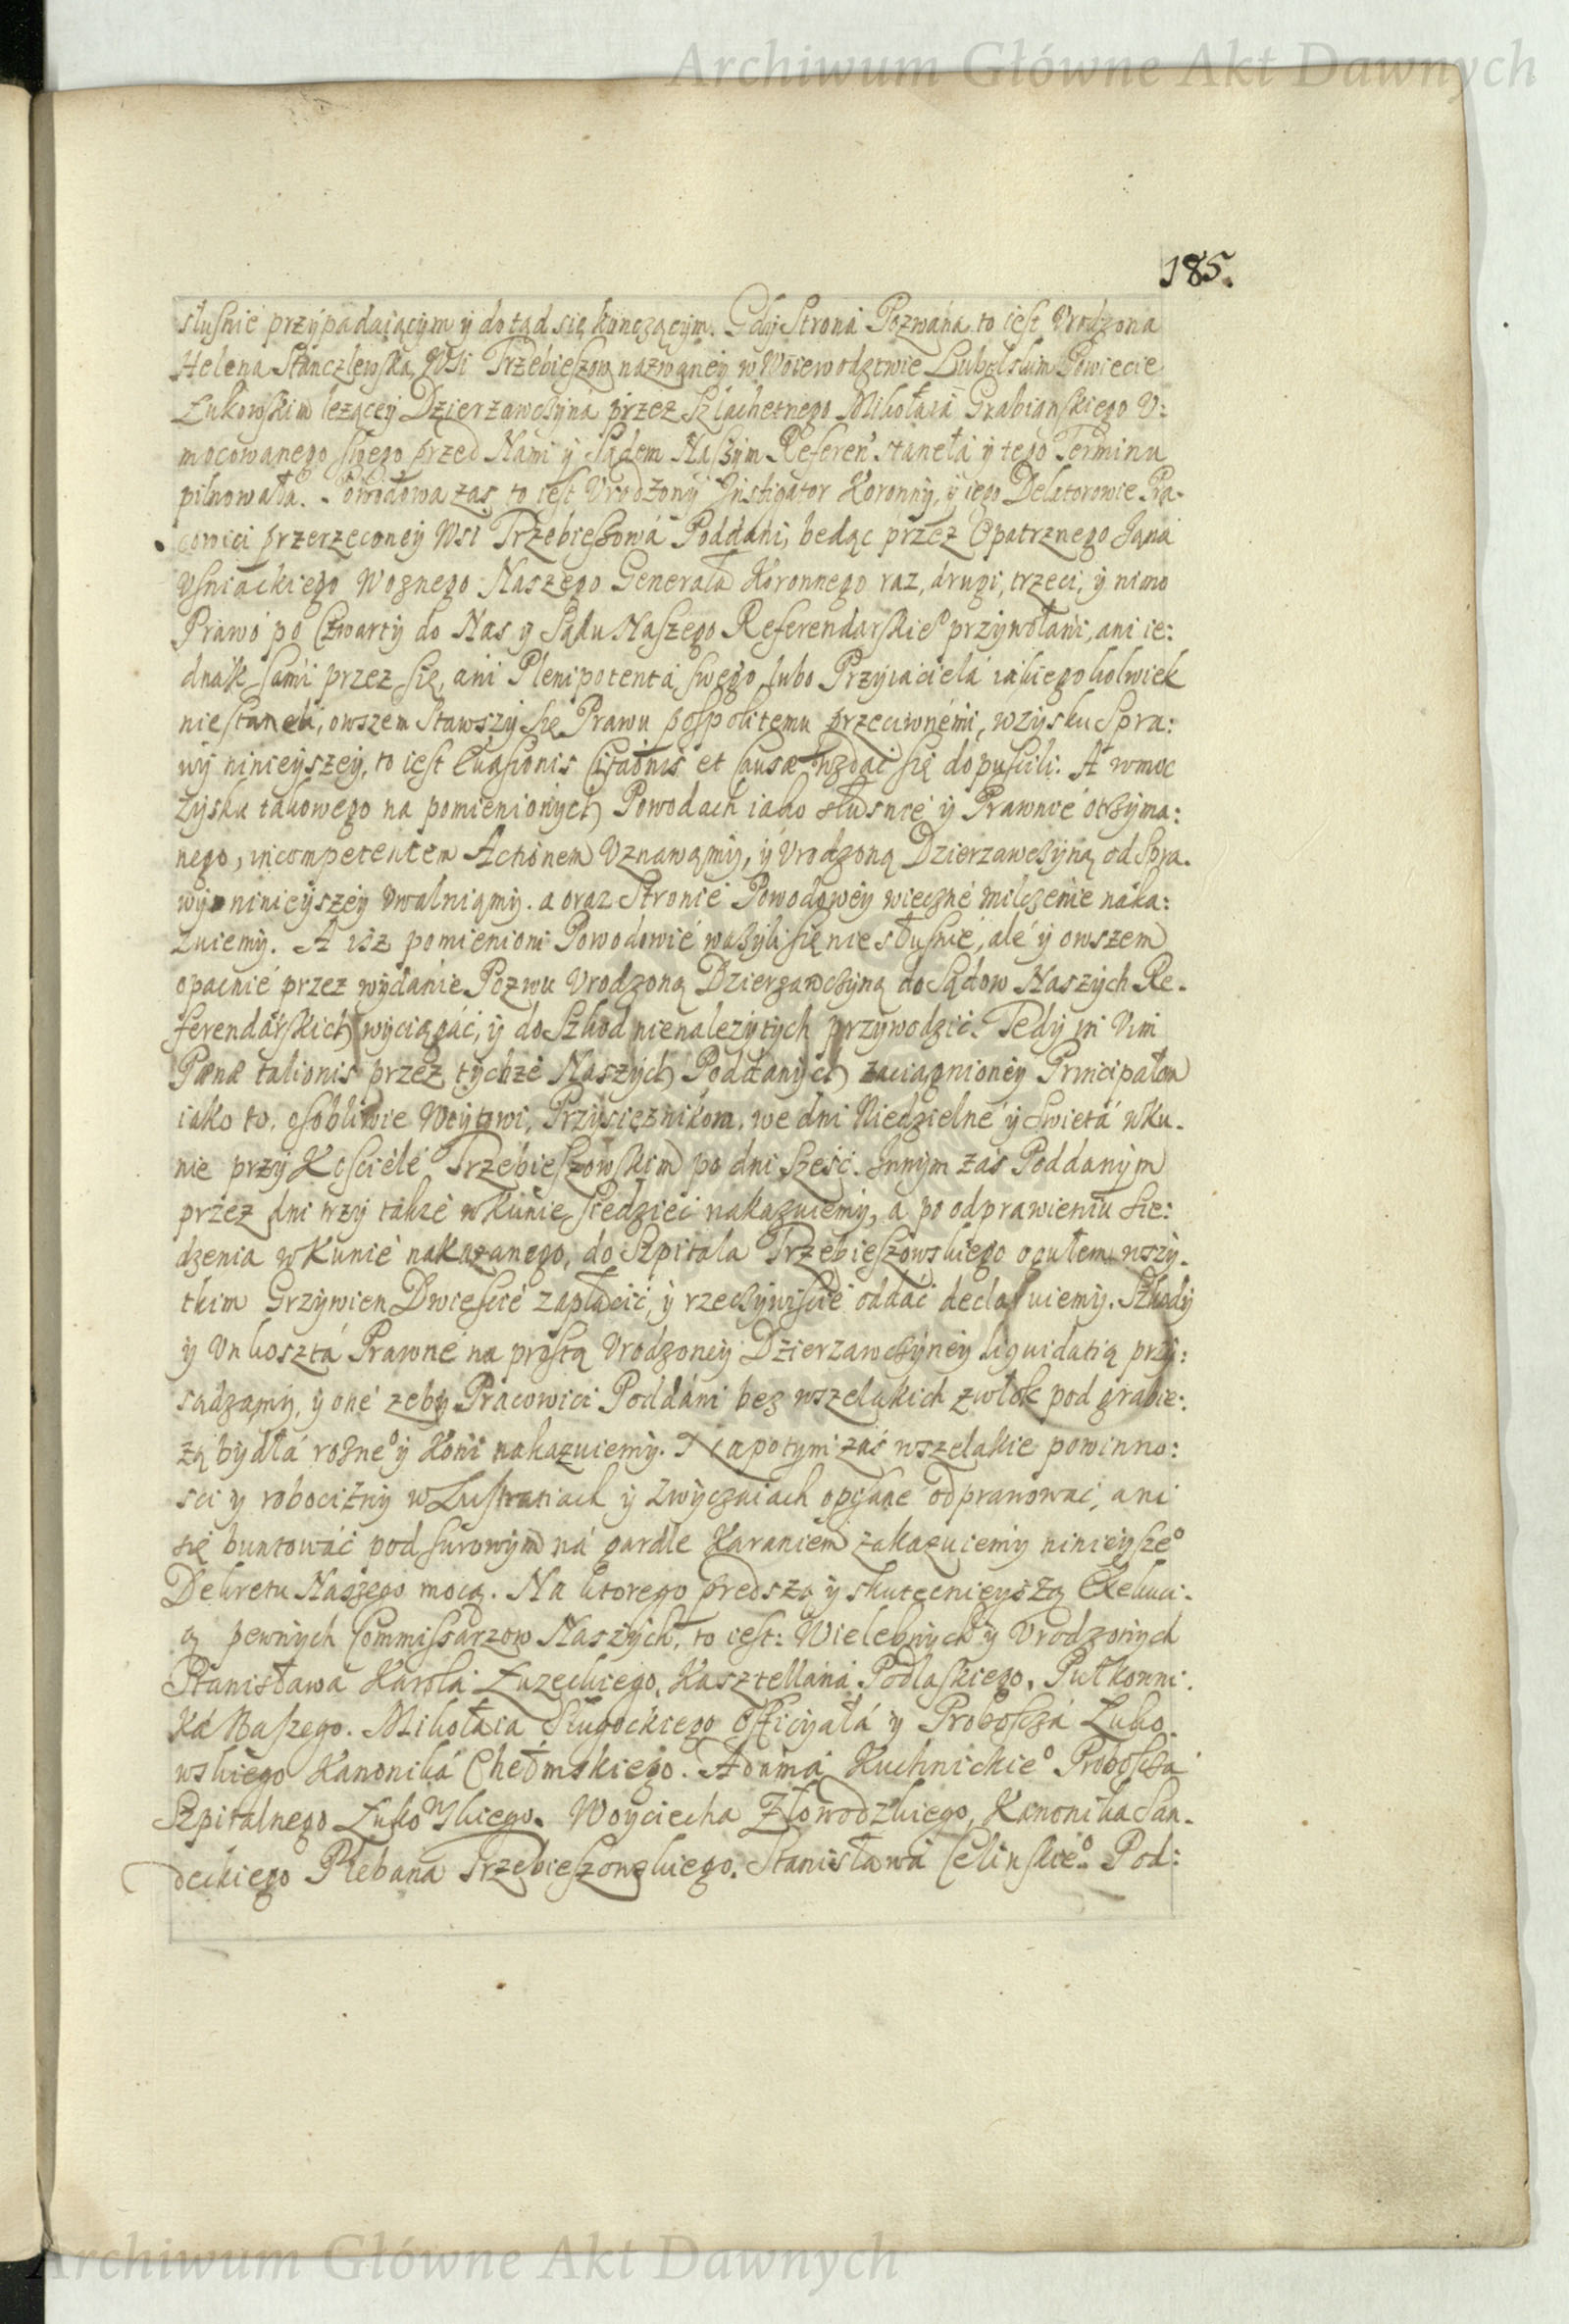 Archiwum Główne Akt Dawnych
185.
słusnie przypadaiącym y do tąd się kończącym. Gdy Strona Pozwana to iest Vrodzona
Helena Stanczlewska, Wsi Trzebieszow nazwaney w Woiewodztwie Lubelskim Powiecie
Łukowskim leżącey Dzierzawczyna przez Szlachetnego Mikołaia Grabianskiego V:
mocowanego swego przed Nami y Sądem Naszym Referen: stanęła y tego Terminu
pilnowała. Powodowa zas to iest Vrodzony Instigator Koronny, y iego Delatorowie Pra-
cowici przerzeconey Wsi Trzebieszowa Poddani, bedąc przez Opatrznego Jana
Vsniackiego Woznego Naszego Generała Koronnego raz, drugi, trzeci, y nimo
Prawo po czwarty do Nas y Sądu Naszego Referendarskie° przywołani, ani ie:
dnak sami przez się, ani Plenipotenta swego, lubo Przyiaciela iakiegokolwiek
nie staneli, owszem stawszy się Prawu pospolitemu przeciwnemi, wzysku Spra:
wy ninieyszey, to iest Euasionis Citationis et Causæ wzdać się dopuscili. A w moc
zysku takowego na pomienionych Powodach iako słusnie y Prawnie otrzyma:
nego, incompetentem Actionem Vznawamy, y Vrodzoną Dzierzawczyną od Spra-
wy ninieyszey vwalniamy. a oraz Stronie Powodowey wieczne milczenie naka:
zuiemy. A isz pomienioni Powodowie wazyli się nie słusnie, ale y owszem
opacnie przez wydanie Pozwu Vrodzoną Dzierzawczyną do Sądow Naszych Re-
ferendarskich wyciągać, y do Szkod nienalezytych przywodzić. Tedy in Vim
Pænæ talionis przez tychze Naszych Poddanych zaciągnioney Principałom
iako to, osobliwie Woytowi, Przysięznikom, we dni Niedzielne y Swieta w Ku-
nie przy Kosciele Trzebieszowskim po dni szesc. Innym zas Poddanym
przez dni trzy takze w Kunie siedziec nakazuiemy, a po odprawieniu sie:
dzenia w Kunie nakazanego, do Szpitala Trzebieszowskiego ogułem wszy-
tkim Grzywien Dwiescie zapłacić, y rzeczywiscie oddać declaruiemy. Szkody
y Vnkoszta Prawne na prostą Vrodzoney Dzierzawczyney liquidatią przy:
sądzamy, y one zeby Pracowici Poddani bez wszelakich zwłok pod grabie:
zą bydła rożne° y Koni nakazuiemy. I napotym zaś wszelakie powinno:
sci y robocizny w Lustratiach y Zwyczaiach opisane odprawowac, ani
się buntować pod surowym na gardle Karaniem zakazuiemy ninieysze°
Dekretu Naszego mocą. Na ktorego predszą y skutecnieyszą Exekuci-
ą pewnych Commissarzow Naszych, to iest: Wielebnych y Vrodzonych
Stanisława Karola Łuzeckiego, Kasztellana Podlaskiego, Pułkowni-
ka Naszego. Mikołaia Długockiego Officyała y Proboszcza Luko-
wskiego Kanonika Chełmskiego. Adama Kuchnickie° Proboszcza
Szpitalnego Lukowskiego. Woyciecha Złowodzkiego, Kanonika San-
deckiego Plebana Trzebieszowskiego. Stanisława Celinskie° Pod:
Archiwum Główne Akt Dawnych